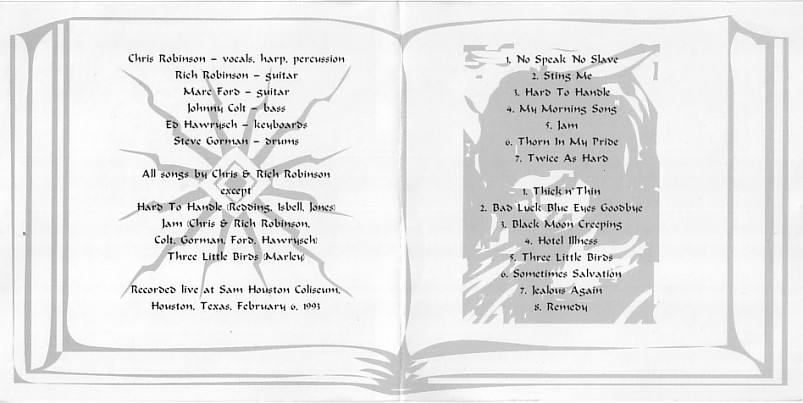 Chris Robinson – vocals, harp, percussion
Rich Robinson – guitar
Marc Ford – guitar
Johnny Colt – bass
Ed Hawrysch – keyboards
Steve Gorman – drums
All songs by Chris & Rich Robinson
except
Hard To Handle (Redding, Isbell, Jones)
Jam (Chris & Rich Robinson,
Colt, Gorman, Ford, Hawrysch)
Three Little Birds (Marley)
Recorded live at Sam Houston Coliseum,
Houston, Texas, February 6, 1993
1. No Speak No Slave
2. Sting Me
3. Hard To Handle
4. My Morning Song
5. Jam
6. Thorn In My Pride
7. Twice As Hard
1. Thick n' Thin
2. Bad Luck Blue Eyes Goodbye
3. Black Moon Creeping
4. Hotel Illness
5. Three Little Birds
6. Sometimes Salvation
7. Jealous Again
8. Remedy